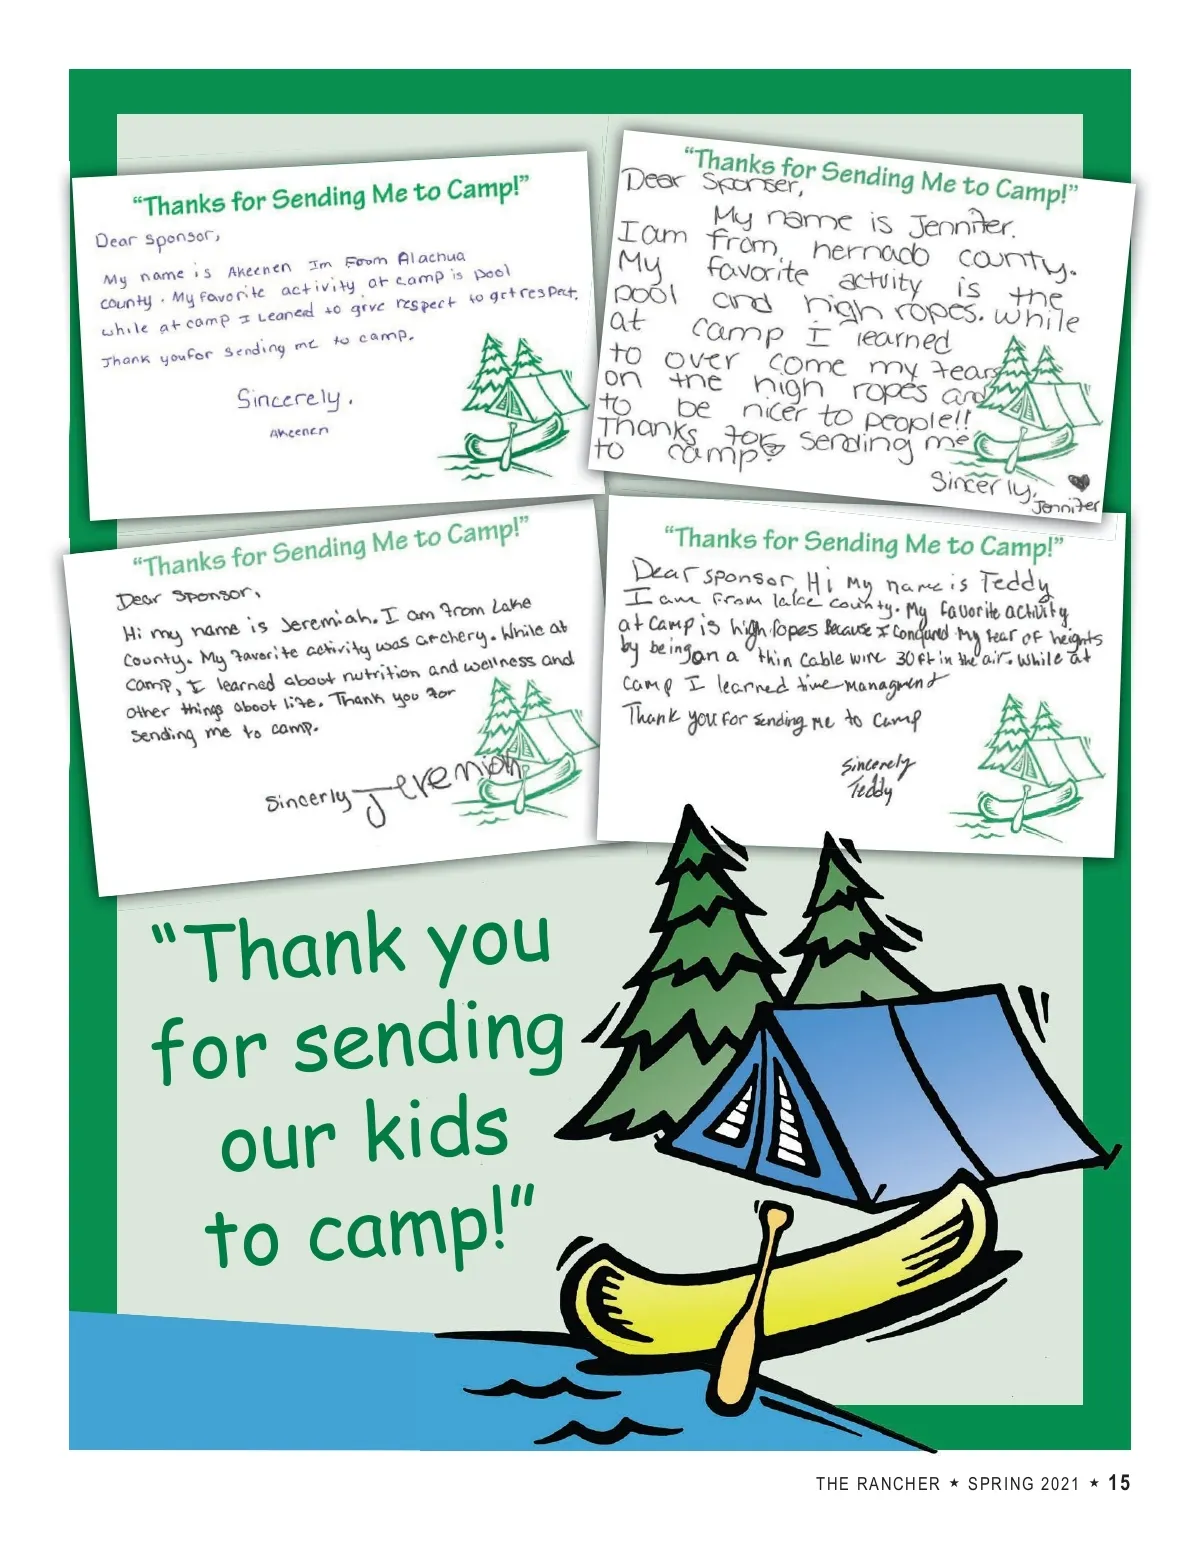 “Thanks for Sending Me to Camp!”
Dear sponsor,
My name is Akeenen Im From Alachua
county. My favorite activity at camp is pool
while at camp I Leaned to give respect to get respect.
Thank you for sending me to camp.
Sincerely,
Akeenen
“Thanks for Sending Me to Camp!”
Dear Sponser,
My name is Jennifer.
I am from, hernado county.
My favorite actvity is the
pool and high ropes. While
at camp I learned
to over come my fears
on the high ropes and
to be nicer to people!!
Thanks for sending me
to camp!
Sincerly,
Jennifer
“Thanks for Sending Me to Camp!”
Dear Sponsor,
Hi my name is Jeremiah. I am from Lake
County. My favorite activity was archery. While at
camp, I learned about nutrition and wellness and
other things about life. Thank you for
sending me to camp.
Sincerly Jeremiah
“Thanks for Sending Me to Camp!”
Dear sponsor, Hi My name is Teddy
I am From lake county. My favorite activity
at camp is high Ropes Because I Conqured My fear of heights
by being on a thin cable wire 30 ft in the air. While at
camp I learned time Managment
Thank you For sending Me to Camp
Sincerely
Teddy
“Thank you
for sending
our kids
to camp!”
THE RANCHER ★ SPRING 2021 ★ 15